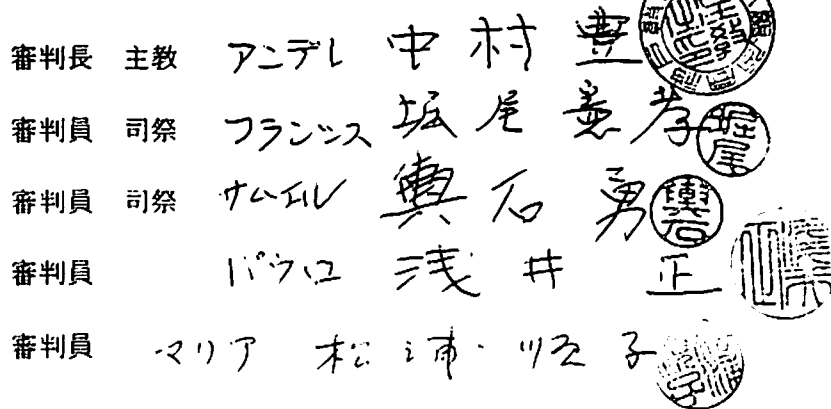 審判長 主教 アンデレ 中村 豊
審判員 司祭 フランシス 堀尾 憲孝 堀尾
審判員 司祭 サムエル 輿石 勇 輿石
審判員 パウロ 浅井 正
審判員 マリア 松浦 順子